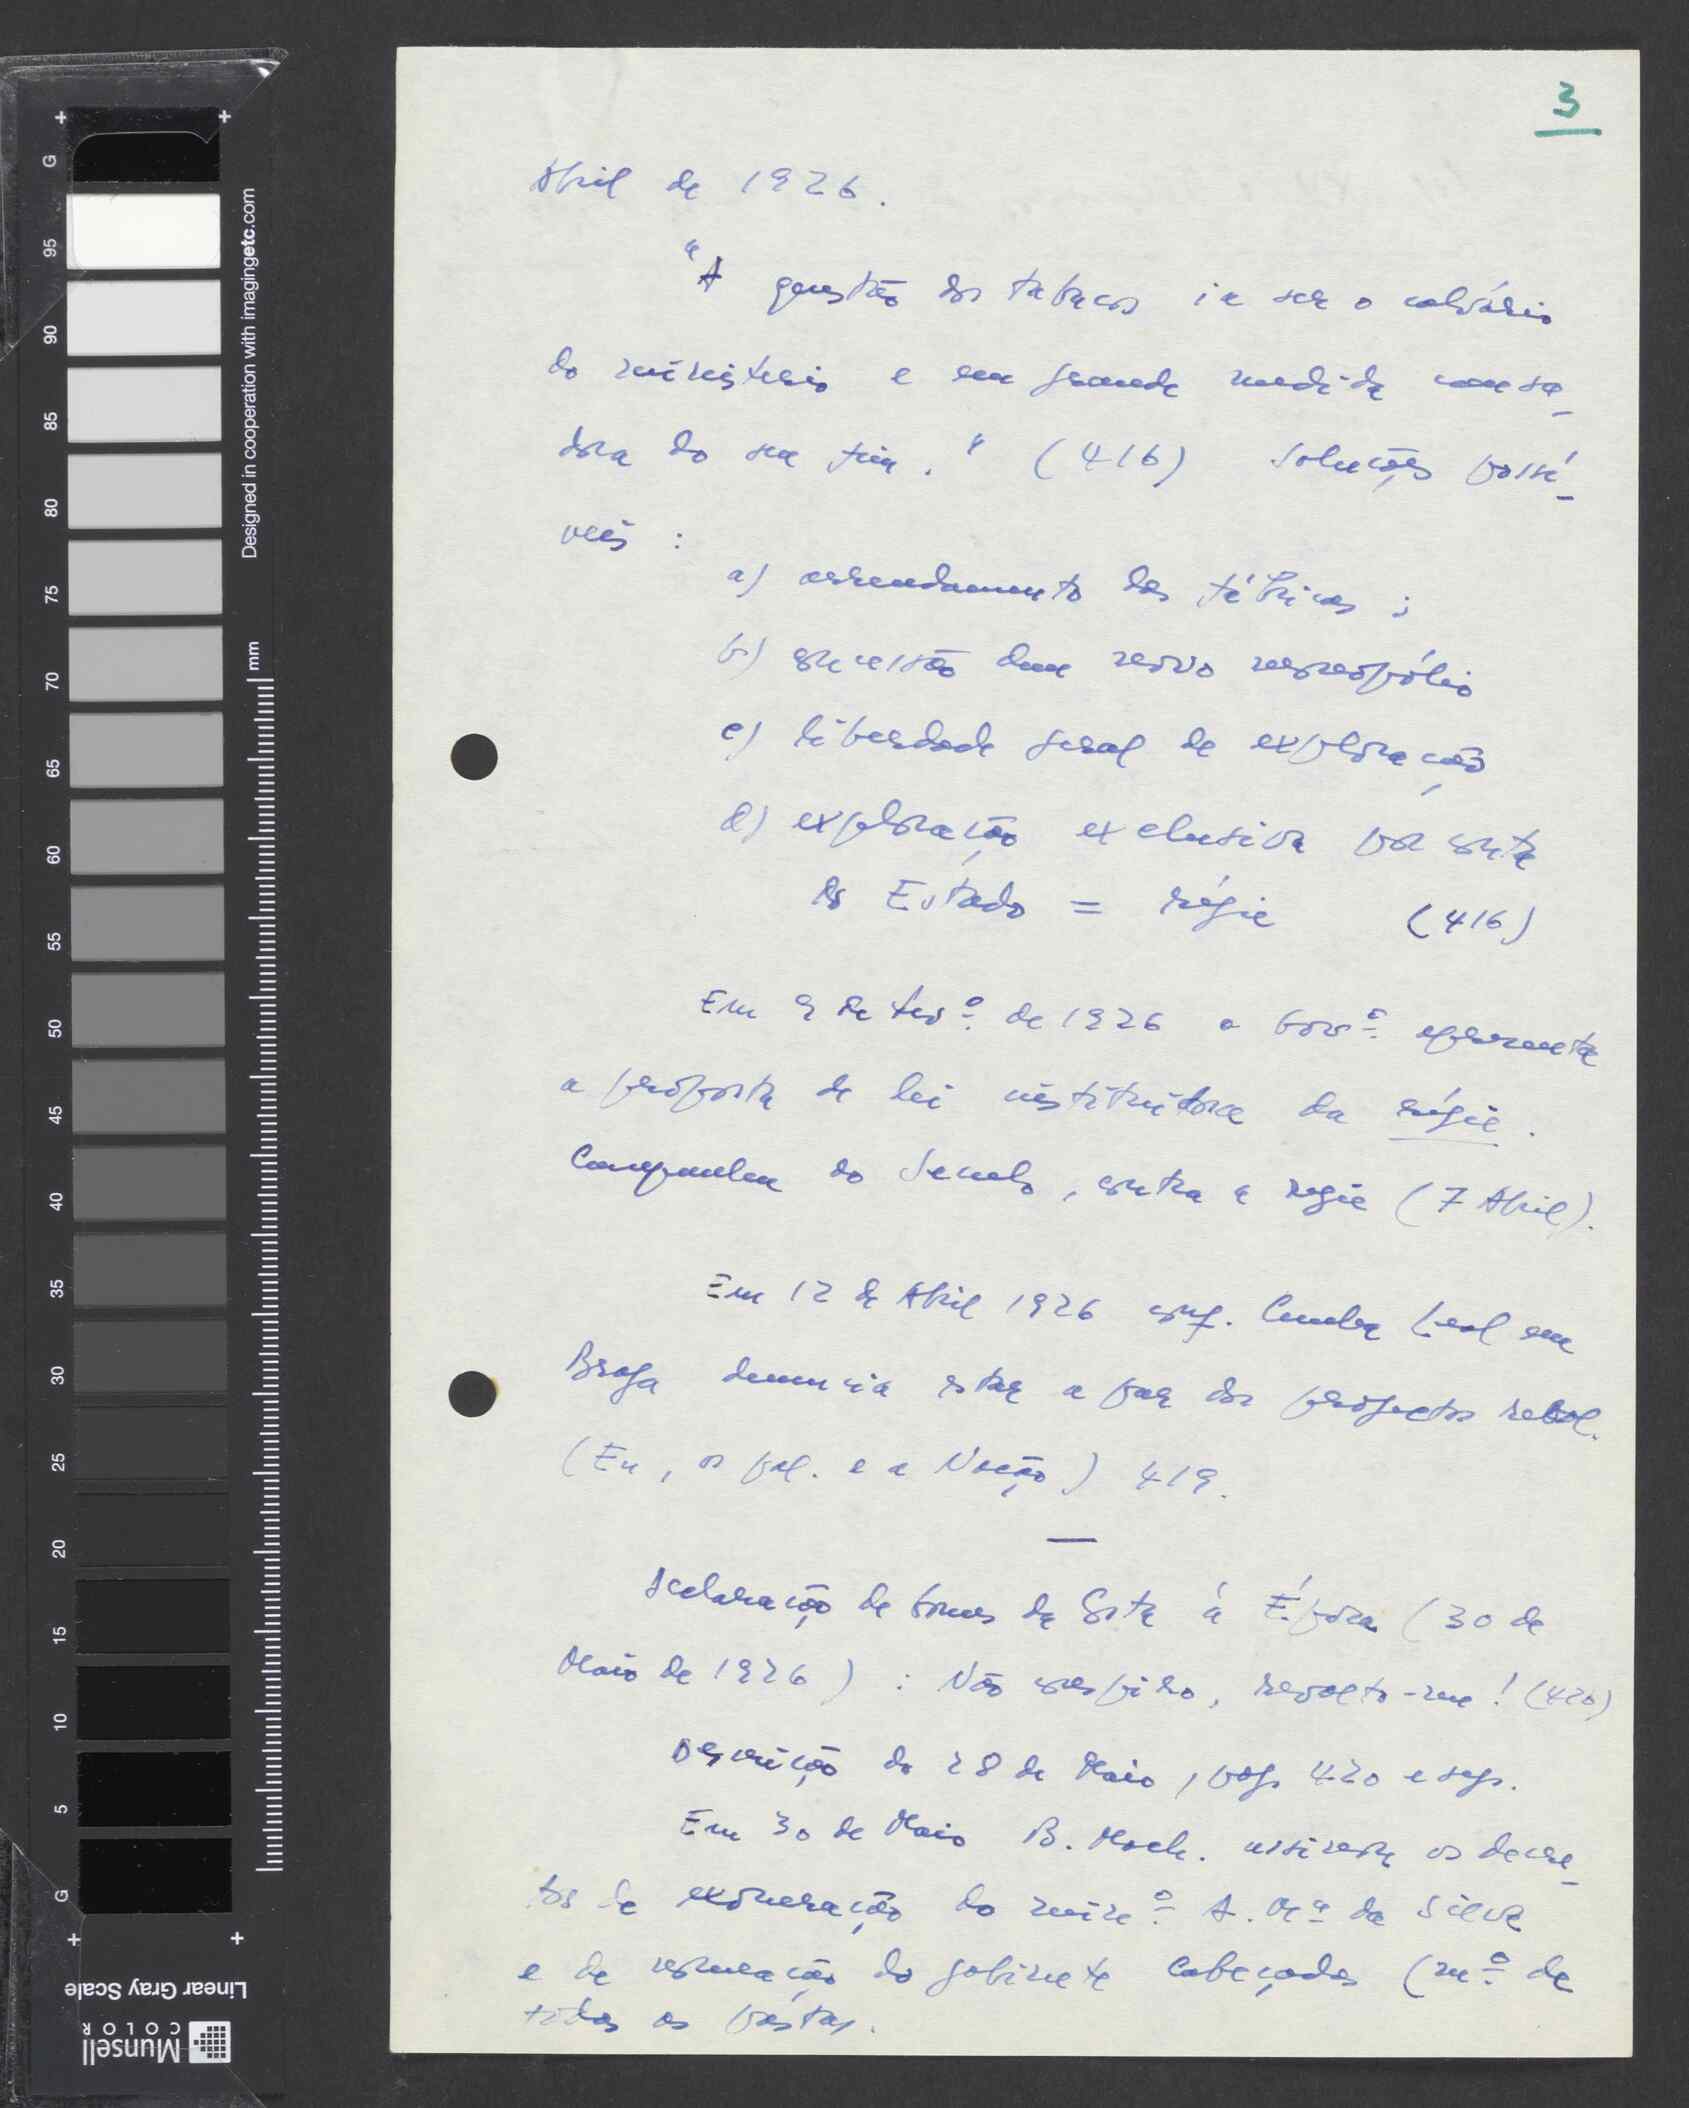 3
Abril de 1926.
"A questão dos tabacos ia ser o calvário
do ministério e em grande medida causa-
dora do seu fim." (416) Soluções possí-
veis :
a) arrendamento das fábricas ;
b) concessão dum novo monopólio
c) liberdade geral de exploração
d) exploração exclusiva por conta
do Estado = régie (416)
Em 9 de fevº. de 1926 o Govº. apresenta
a proposta de lei instituidora da régie.
Campanha do Século, contra a regie (7 Abril).
Em 12 de Abril 1926 conf. Cunha Leal em
Braga denuncia estar a par dos projectos revol.
(Eu, os pol. e a Nação) 419.
—
Declaração de Gomes da Costa à Época (30 de
Maio de 1926) : Não conspiro, revolto-me! (420)
Descrição do 28 de Maio, pág. 420 e segs.
Em 30 de Maio B. Mach. assinou os decre-
tos de exoneração do minº. A. Mª. da Silva
e de nomeação do gabinete Cabeçadas (mº. de
todas as pastas.
G
95
90
85
80
75
70
65
60
55
50
45
40
35
30
25
20
15
10
5
G
mm
Designed in cooperation with imagingetc.com
Linear Gray Scale
Munsell
COLOR